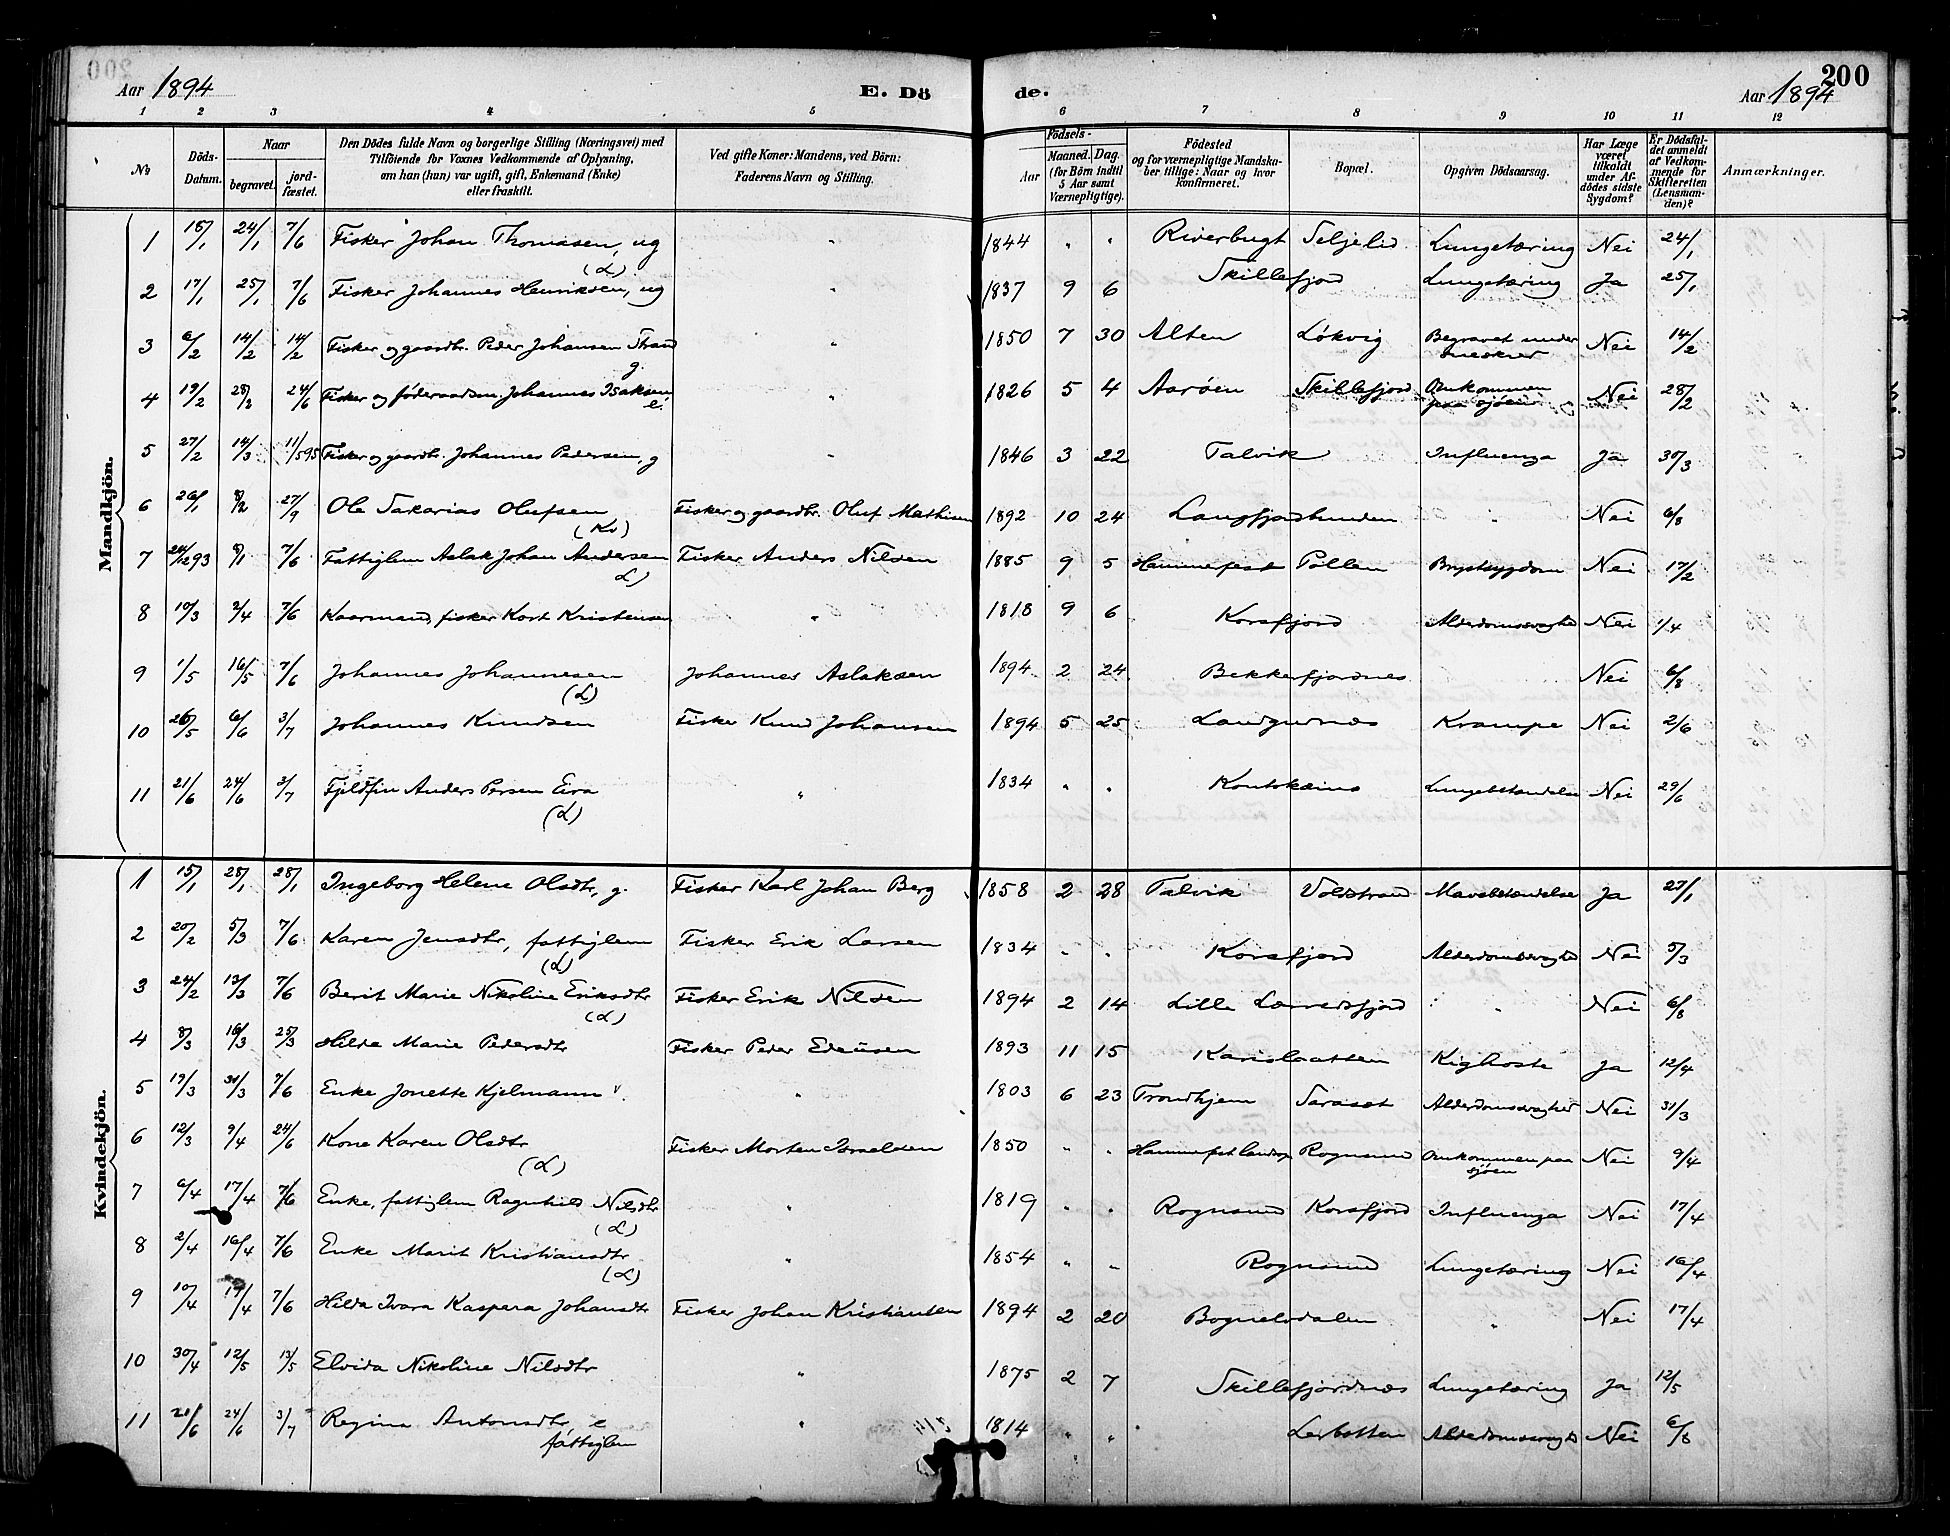 200
Aar 1894 E. Dö de. Aar 1894
1 2 3 4 5 6 7 8 9 10 11 12
№ Döds-Datum. Naar begravet. jordfæstet. Den Dödes fulde Navn og borgerlige Stilling (Næringsvei) med Tilföiende for Voxnes Vedkommende af Oplysning, om han (hun) var ugift, gift, Enkemand (Enke) eller fraskilt. Ved gifte Koner: Mandens, ved Börn: Faderens Navn og Stilling. Födsels- Aar Maaned. Dag. (for Börn indtil 5 Aar samt Værnepligtige). Födested og for værnepligtige Mandskaber tillige: Naar og hvor konfirmeret. Bopæl. Opgiven Dödsaarsag. Har Læge været tilkaldt under Afdödes sidste Sygdom? Er Dödsfaldet anmeldt af Vedkommende for Skifteretten (Lensmanden)? Anmærkninger.
Mandkjön.
1 16/1 24/1 7/6 Fisker Johan Thomasen, ug (L) " 1844 " " Riverbugt Seljelid Lungetæring Nei 24/1
2 17/1 25/1 7/6 Fisker Johannes Henriksen, ug " 1837 9 6 Skillefjord Lungetæring Ja 25/1
3 6/2 14/2 14/2 Fisker og gaardbr. Peder Johansen Strand g. " 1850 7 30 Alten Løkvig Begravet under sneskred Nei 14/2
4 19/2 28/2 24/6 Fisker og föderaadsm. Johannes Isaksen e. " 1826 5 4 Aarøen Skillefjord Omkommen paa sjøen Nei 28/2
5 27/2 14/3 11/5 95 Fisker og gaardbr. Johannes Pedersen, g " 1846 3 22 Talvik Influenza Ja 30/3
6 26/1 8/2 27/9 Ole Sakarias Olufsen (Kv) Fisker og gaardbr. Oluf Mathisen 1892 10 24 Langfjordbunden " Nei 6/8
7 24/12 93 8/1 7/6 Fattiglem Aslak Johan Andersen (L) Fisker Anders Nilsen 1885 9 5 Hammerfest Pollen Brystsygdom Nei 17/2
8 10/3 2/4 7/6 Kaarmand, fisker Kort Kristensen " 1818 9 6 Korsfjord Alderdomssvaghed Nei 1/4
9 1/5 16/5 7/6 Johannes Johannesen (L) Johannes Aslaksen 1894 2 24 Bekkerfjordnes Nei 6/8
10 26/5 6/6 3/7 Johannes Knudsen Fisker Knud Johansen 1894 5 25 Landgudnæs Krampe Nei 2/6
11 21/6 24/6 3/7 Fjeldfin Anders Persen Eira (L) " 1834 " " Koutokeino Lungebetændelse Nei 29/6
Kvindekjön.
1 15/1 28/1 28/1 Ingeborg Helene Olsdtr, g. Fisker Karl Johan Berg 1858 2 28 Talvik Voldstrand Mavebetændelse Ja 27/1
2 20/2 5/3 7/6 Karen Jensdtr, fattiglem (L) Fisker Erik Larsen 1834 " " Korsfjord Alderdomssvaghed Nei 5/3
3 24/2 13/3 7/6 Berit Marie Nikoline Eriksdtr (L) Fisker Erik Nilsen 1894 2 14 Lille Lerredsfjord " Nei 6/8
4 8/3 16/3 25/3 Hilda Marie Pedersdtr Fisker Peder Edeusen 1893 11 15 Karislaatten Kighoste Ja 12/4
5 19/3 31/3 7/6 Enke Jonette Kjelmann " 1803 6 23 Trondhjem Saraset Alderdomssvaghed Nei 31/3
6 12/3 9/4 24/6 Kone Karen Olsdtr (L) Fisker Morten Israelsen 1850 " " Hammerfest landsogn Rognsund Omkommen paa sjöen Nei 9/4
7 6/4 17/4 7/6 Enke, fattiglem Ragnhild Nilsdtr (L) " 1819 " " Rognsund Korsfjord Influenza Nei 17/4
8 2/4 16/4 7/6 Enke Marit Kristiansdtr (L) " 1854 " " Rognsund Lungetæring Nei 16/4
9 10/4 17/4 7/6 Hilda Ivara Kaspara Johansdtr Fisker Johan Kristiansen 1894 2 20 Bognelvdalen " Nei 17/4
10 30/4 12/5 13/5 Elvida Nikoline Nilsdtr " 1875 2 7 Skillefjordnæs Lungetæring Ja 12/5
11 21/6 24/6 3/7 Regina Antonsdtr e fattiglem " 1814 " " Lerbotten Alderdomssvaghed Nei 6/8